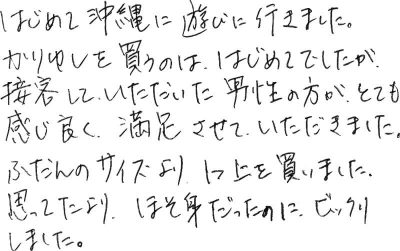 はじめて沖縄に遊びに行きました。
かりゆしを買うのは、はじめてでしたが、
接客して、いただいた男性の方が、とても
感じ良く、満足させて、いただきました。
ふだんのサイズより、1つ上を買いました。
思ってたより、ほそ身だったのに、ビックリ
しました。